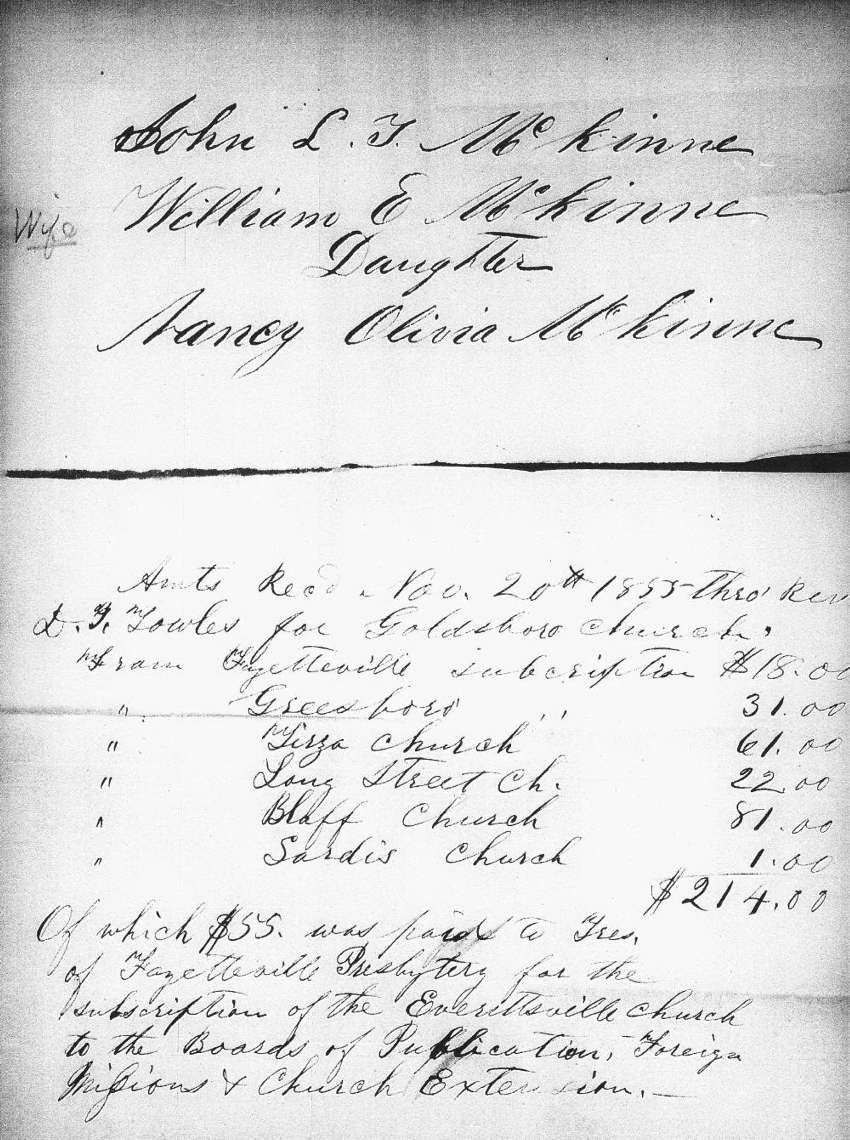 John L. F. McKinne
Wife
William E McKinne
Daughter
Nancy Olivia McKinne
Amts Recd Nov. 20th 1855 thro' Rev
D. F. Towles for Goldsboro church.
From Fayetteville subscription $18.00
" Greesboro " 31.00
" Tirza church 61.00
" Long Street Ch. 22.00
" Bluff Church 81.00
" Sardis Church 1.00
$214.00
Of which $55. was paid to Tres.
of Fayetteville Presbytery for the
subscription of the Everettsville church
to the Boards of Publication, Foreign
Missions & Church Extension. —